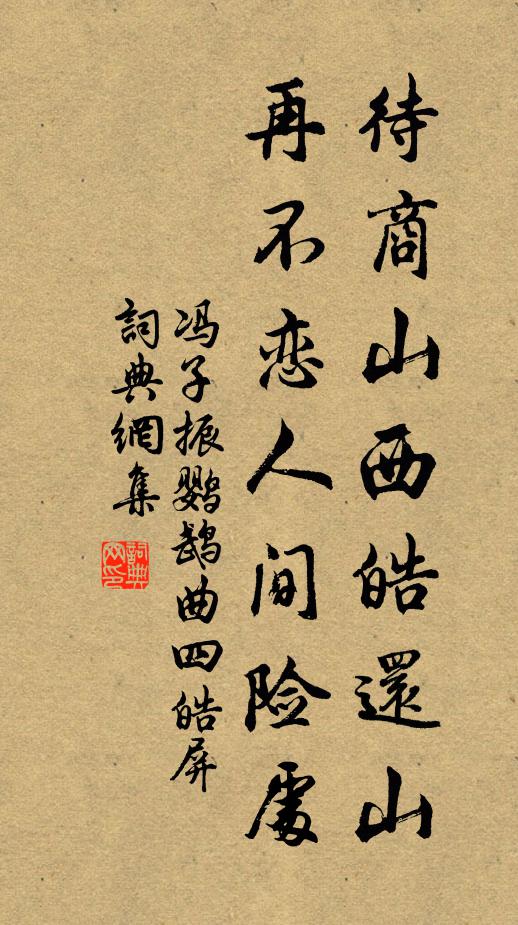 待商山西皓還山
再不恋人间险處
冯子振鹦鹉曲四皓屏
詞典網集
詞典网印